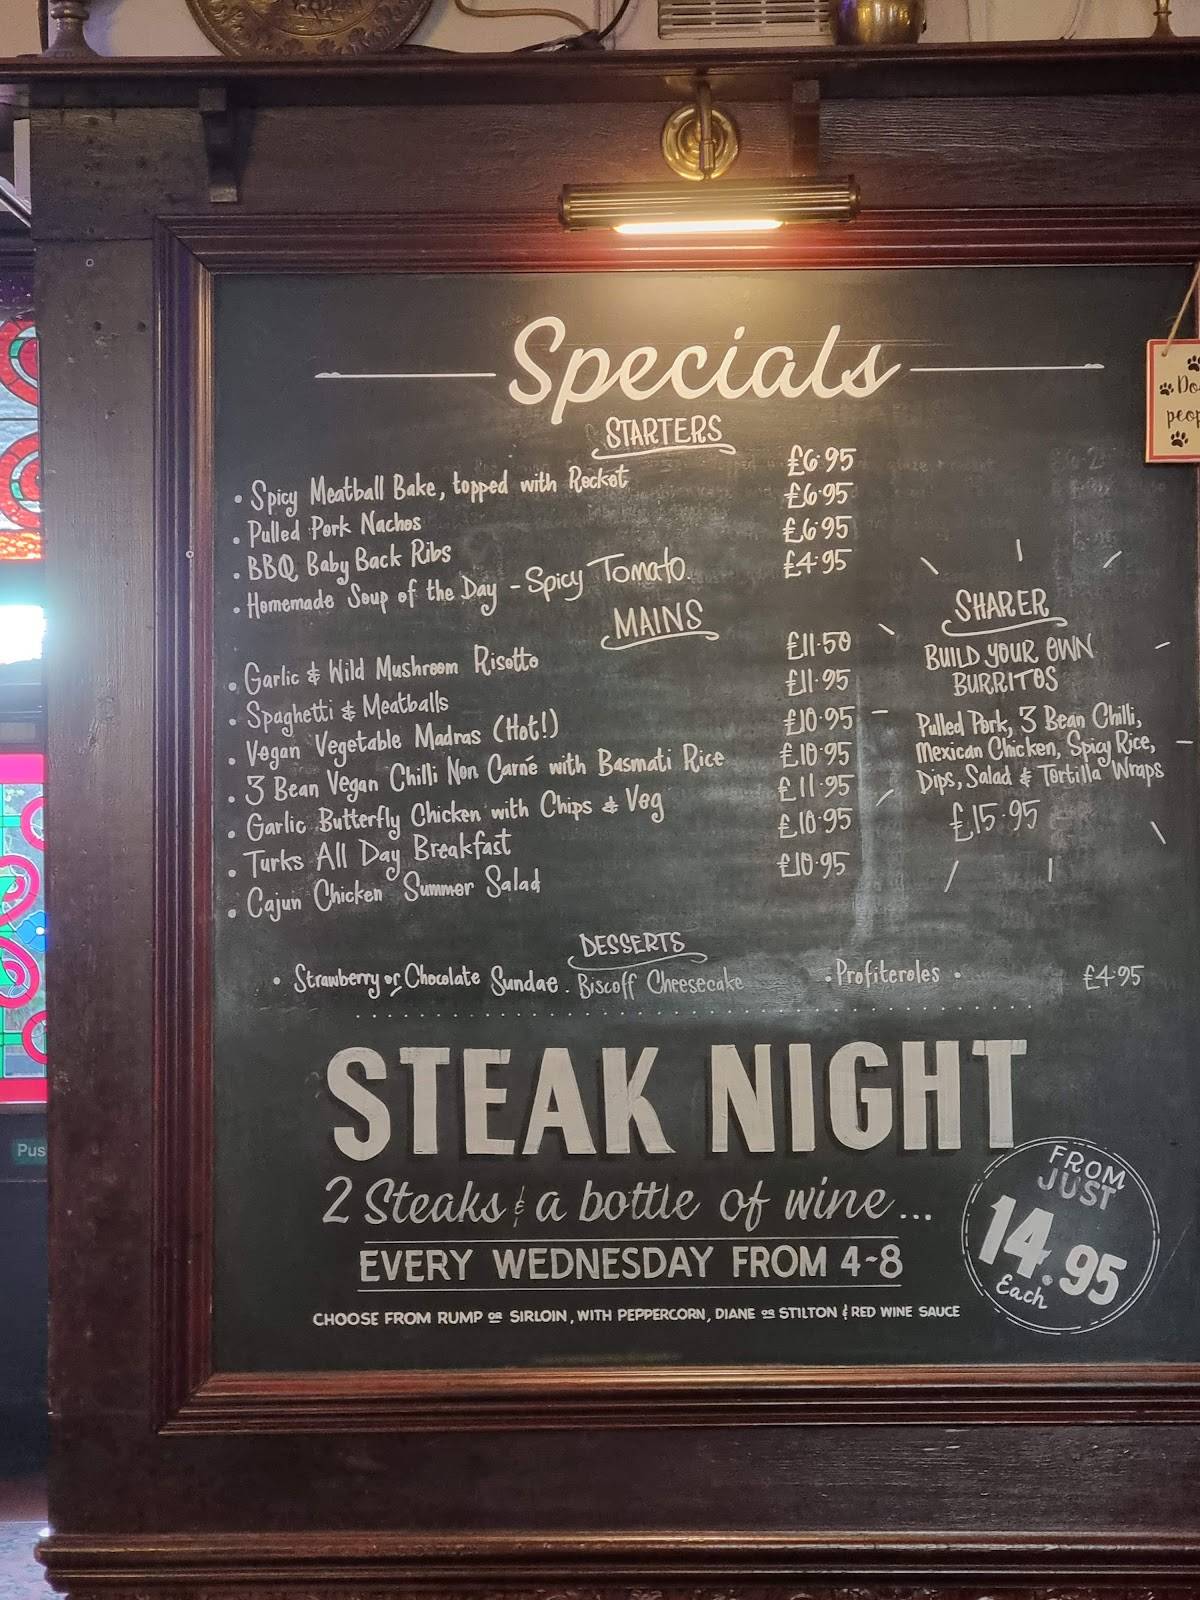 Specials
STARTERS
• Spicy Meatball Bake, topped with Rocket £6.95
• Pulled Pork Nachos £6.95
• BBQ Baby Back Ribs £6.95
• Homemade Soup of the Day - Spicy Tomato £4.95
MAINS
• Garlic & Wild Mushroom Risotto £11.50
• Spaghetti & Meatballs £11.95
• Vegan Vegetable Madras (Hot!) £10.95
• 3 Bean Vegan Chilli Non Carné with Basmati Rice £10.95
• Garlic Butterfly Chicken with Chips & Veg £11.95
• Turks All Day Breakfast £10.95
• Cajun Chicken Summer Salad £10.95
SHARER
BUILD YOUR OWN
BURRITOS
Pulled Pork, 3 Bean Chilli,
Mexican Chicken, Spicy Rice,
Dips, Salad & Tortilla Wraps
£15.95
DESSERTS
• Strawberry or Chocolate Sundae . Biscoff Cheesecake • Profiteroles • £4.95
STEAK NIGHT
2 Steaks & a bottle of wine...
EVERY WEDNESDAY FROM 4-8
CHOOSE FROM RUMP OR SIRLOIN, WITH PEPPERCORN, DIANE OR STILTON & RED WINE SAUCE
FROM
JUST
14.95
Each
Pus